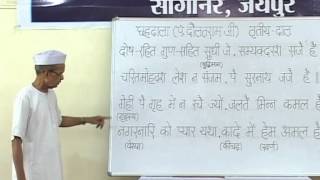 सांगानेर, जयपुर
छहढाला (पं. दौलतराम जी) तृतीय ढाल
दोष-रहित गुण-सहित सुधी जे, सम्यक्दरश सजै हैं
(बुद्धिमान)
चरितमोहवश लेश न संजम, पै सुरनाथ जजै हैं ।
गेही, पै गृह में न रचै ज्यों, जलतैं भिन्न कमल है
(गृहस्थ)
नगरनारि को प्यार यथा, कादे में हेम अमल है
(वेश्या) (कीचड़) (स्वर्ण)